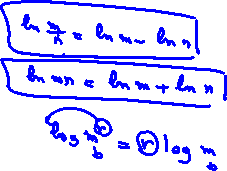 ln m/n = ln m - ln n
ln mn = ln m + ln n
log m^r_b = r log m_b